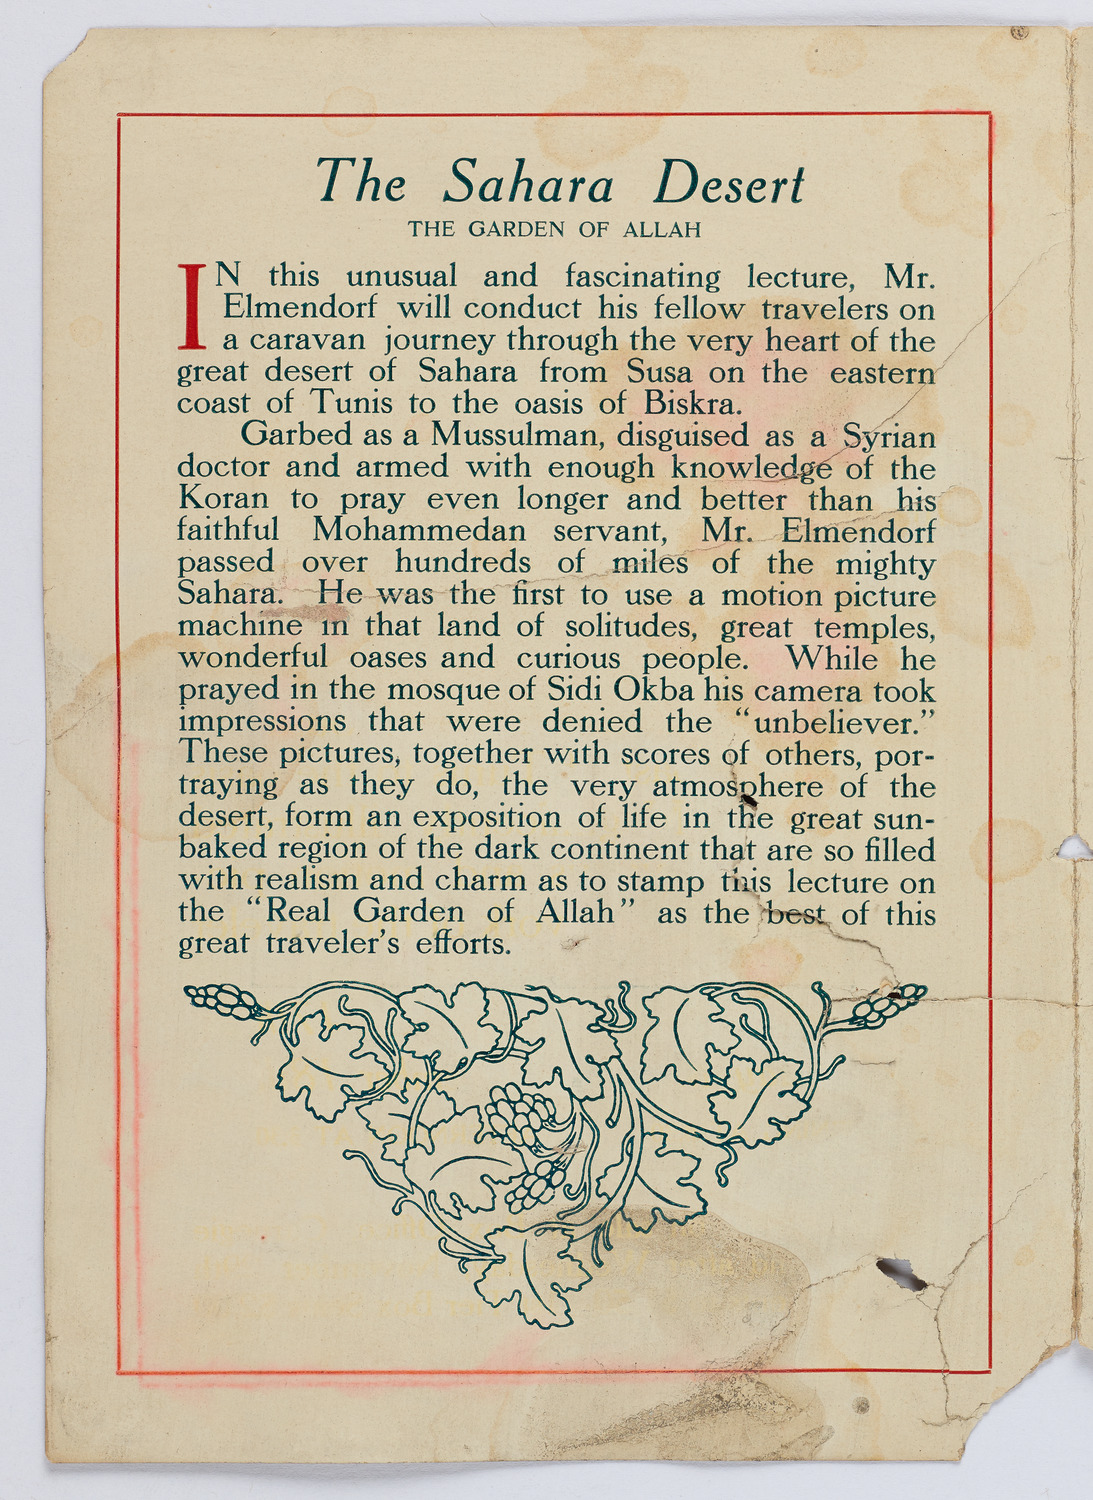 The Sahara Desert
THE GARDEN OF ALLAH
IN this unusual and fascinating lecture, Mr.
Elmendorf will conduct his fellow travelers on
a caravan journey through the very heart of the
great desert of Sahara from Susa on the eastern
coast of Tunis to the oasis of Biskra.
Garbed as a Mussulman, disguised as a Syrian
doctor and armed with enough knowledge of the
Koran to pray even longer and better than his
faithful Mohammedan servant, Mr. Elmendorf
passed over hundreds of miles of the mighty
Sahara. He was the first to use a motion picture
machine in that land of solitudes, great temples,
wonderful oases and curious people. While he
prayed in the mosque of Sidi Okba his camera took
impressions that were denied the “unbeliever.”
These pictures, together with scores of others, por-
traying as they do, the very atmosphere of the
desert, form an exposition of life in the great sun-
baked region of the dark continent that are so filled
with realism and charm as to stamp this lecture on
the “Real Garden of Allah” as the best of this
great traveler’s efforts.